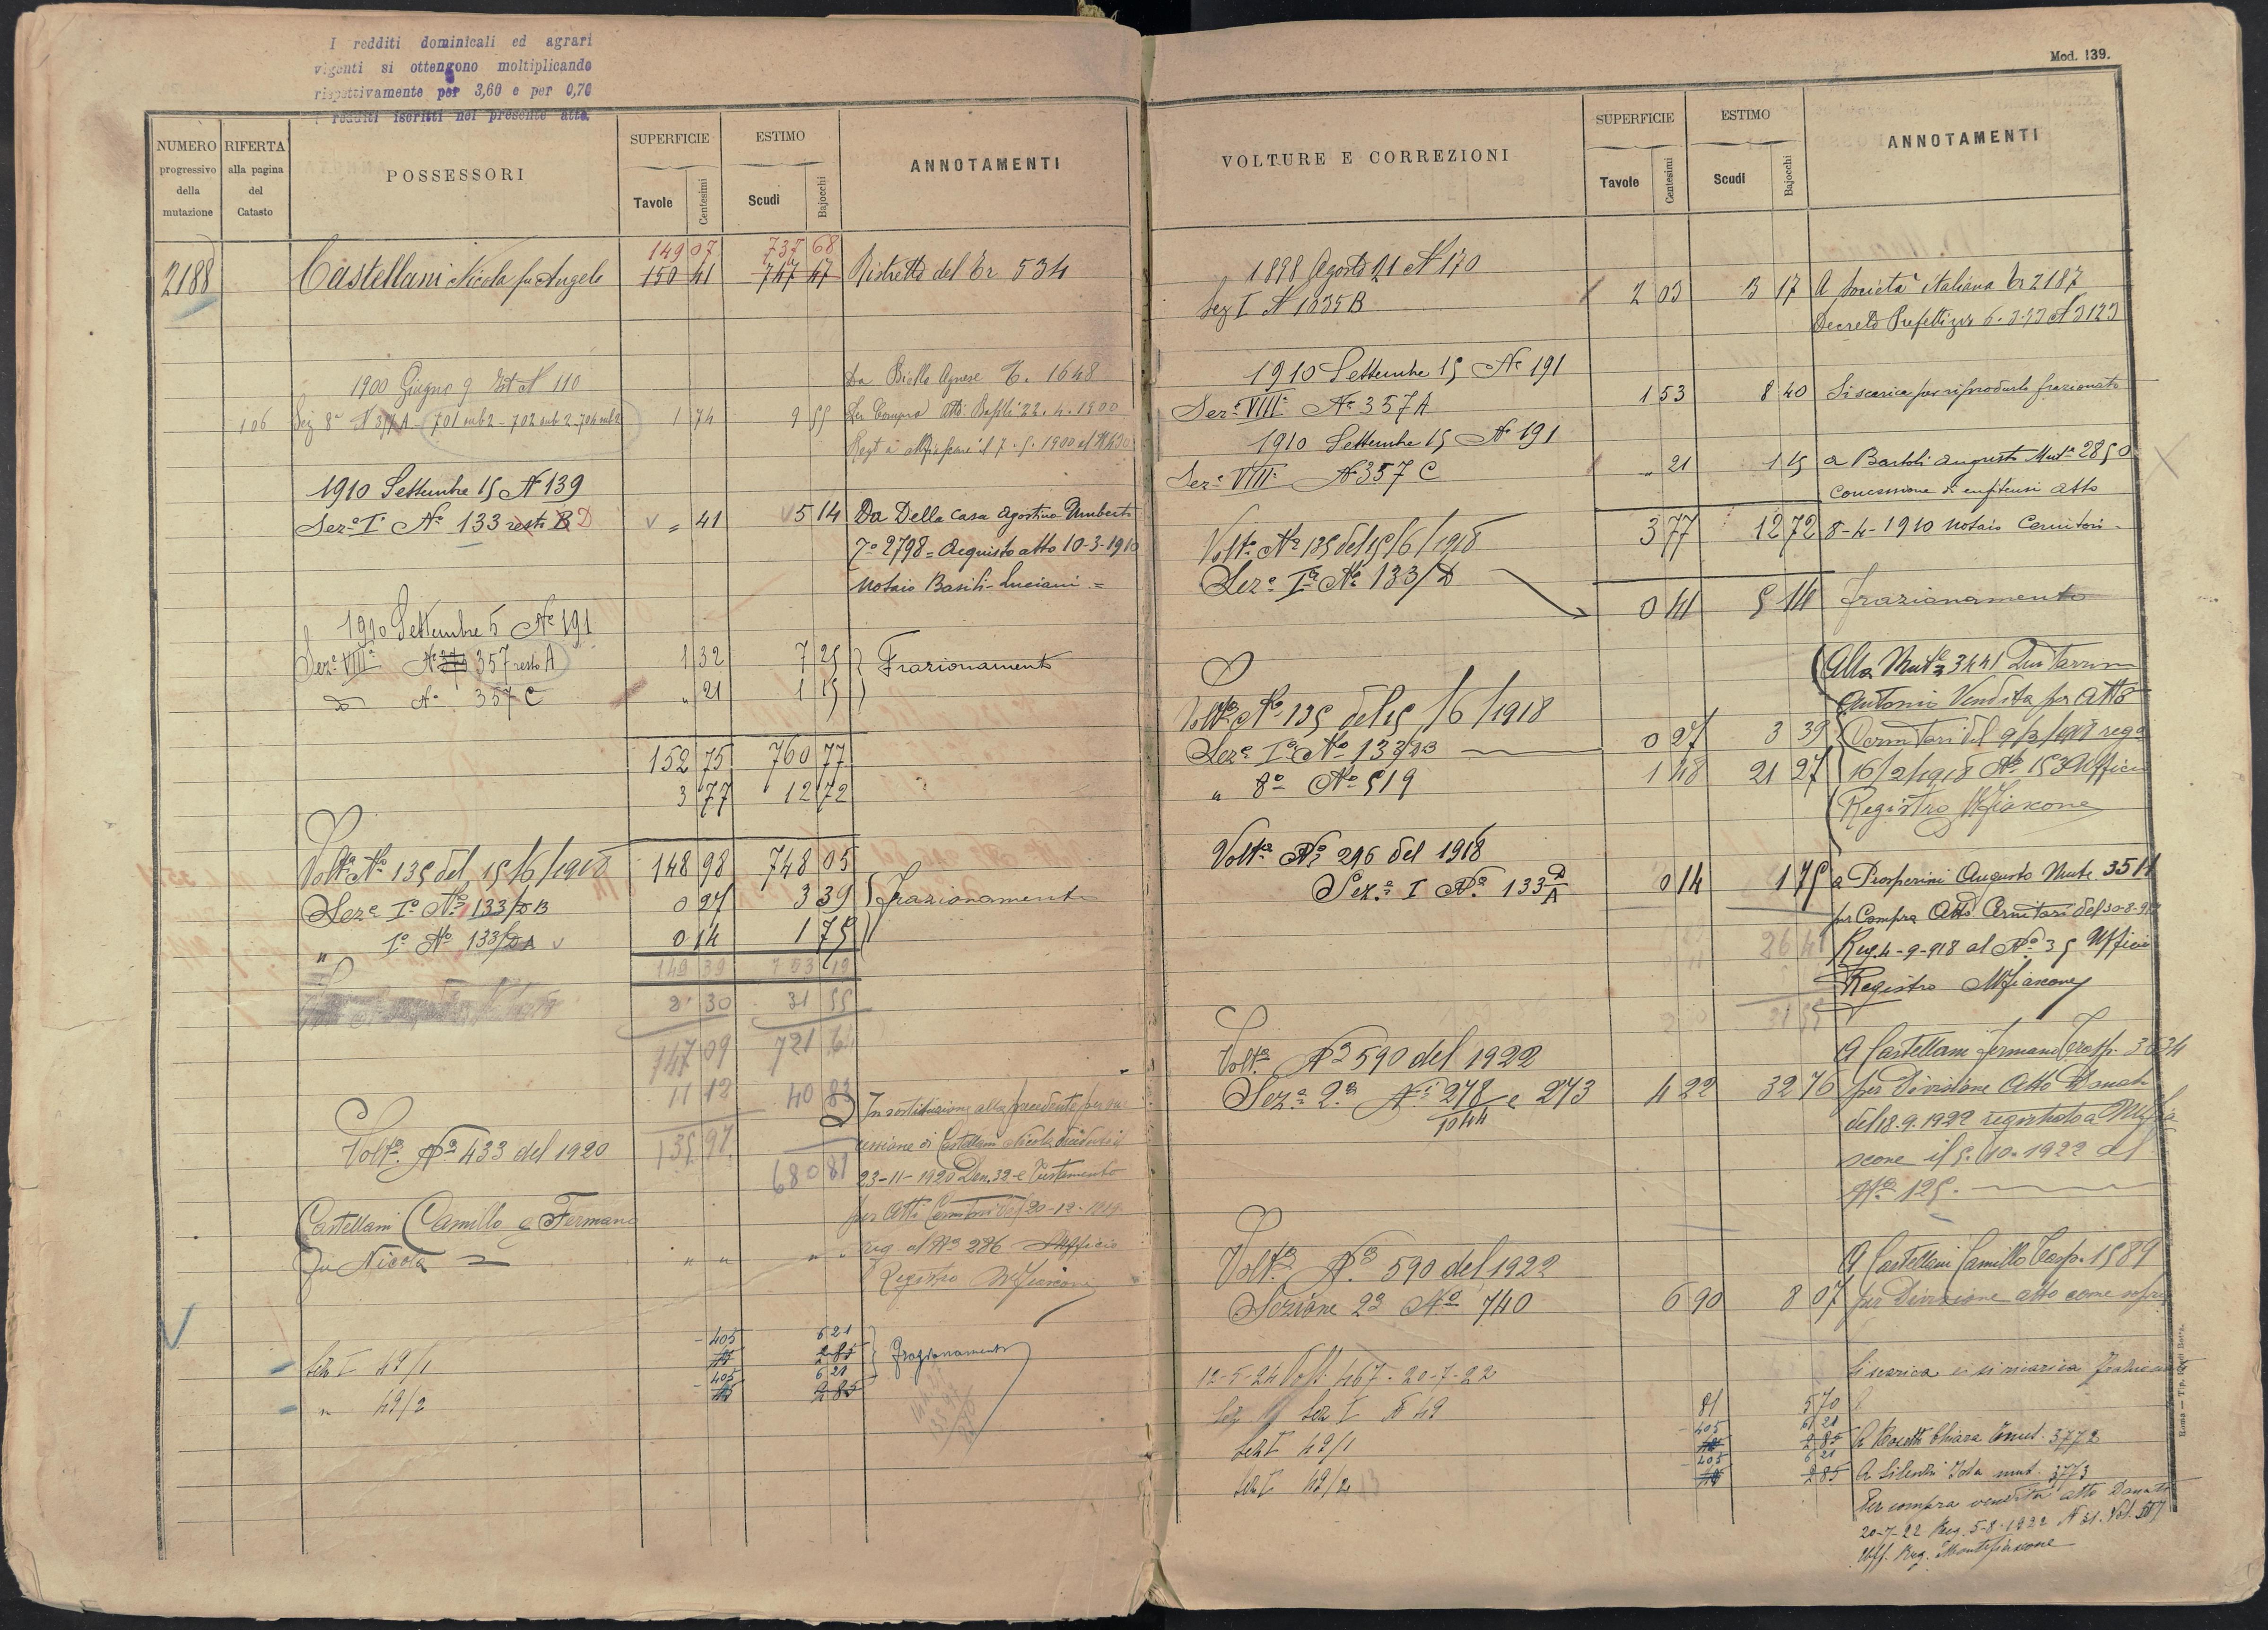 I redditi dominicali ed agrari
vigenti si ottengono moltiplicando
rispettivamente per 3,60 e per 0,70
i redditi iscritti nel presente atto.
NUMERO
progressivo
della
mutazione
RIFERTA
alla pagina
del
Catasto
POSSESSORI
SUPERFICIE
Tavole
Centesimi
ESTIMO
Scudi
Bajocchi
ANNOTAMENTI
149 07 737 68
2188 Castellani Nicola fu Angelo 150 41 747 47 Ristretto del Tr 534
1900 Giugno 9 Est N 110 Da Biello Agnese T. 1648
106 Sez 8a N 357A - 701 sub 2 - 702 sub 2 - 704 sub 2 1 74 9 55 Per Compra Atti Basili 22.4.1900
Regt a Mfiascone il 7.5.1900 al N 630
1910 Settembre 15 N 139
Seze I N° 133 resto B D = 41 5 14 Da Della Casa Agostino Umberto
7° 2798 = Acquisto atto 10-3-1910
Notaio Basili-Luciani =
1910 Settembre 5 N° 191
Seze VIII N° 357 resto A 1 32 7 25 Frazionamento
N° 357 C " 21 1 15
152 75 760 77
3 77 12 72
Volta N° 135 del 15/6/1918 148 98 748 05
Seze I° N° 133/D B 0 27 3 39 Frazionamento
" I° N° 133/D A 0 14 1 75
149 39 753 19
2 30 31 55
147 09 721 64
11 12 40 83 In sostituzione alla precedente per suc
Volta N° 433 del 1920 135 97 cessione di Castellani Nicola deceduto il
680 81 23-11-1920 Den. 32 e Testamento
Castellani Camillo e Fermano per Atti Cernitori del 20-12-
fu Nicola = " " " " reg. al N° 286 Ufficio
Registro Mfiascone
Sez I 49/1 405 6 21 Frazionamento
2 85
" 49/2 405 6 21
2 85
Mod. 139.
VOLTURE E CORREZIONI
SUPERFICIE
Tavole
Centesimi
ESTIMO
Scudi
Bajocchi
ANNOTAMENTI
1898 Agosto 21 N 170
Sez I N 1035 B 2 03 3 17 A Società italiana Tr 2187
Decreto Prefettizio 6.3.93 N 3123
1910 Settembre 15 N° 191
Seze VIII N° 357 A 1 53 8 40 Si scarica per riprodurlo frazionato
1910 Settembre 15 N° 191
Seze VIII N° 357 C " 21 1 15 a Bartoli Augusto Muta 2850
concessione di enfiteusi atto
3 77 12 72 8-4-1910 Notaio Cernitori
Volta N° 135 del 15/6/1918
Seze Ia N° 133/D 0 41 5 14 frazionamento
Alla Muta 3441
Antonio Vendita per Atto
Volta N° 135 del 15/6/1918
Seze I° N° 133/DB 0 27 3 39 Cernitori del 9/2/1918 rego
" 8a N° 519 1 48 21 27 16/2/1918 N° 153 Ufficio
Registro Mfiascone
Volta N° 296 del 1918
Seza I N° 133 D/A 0 14 1 75 a Prosperini Augusto Muta 3514
per Compra Atto Cernitori del 30-8-918
26 41 Reg. 4-9-918 al N° 35 Ufficio
Registro Mfiascone
31 55
Volta N° 590 del 1922 A Castellani Fermano Trasp. 3634
Seza 2a Ni 278/1044 e 273 4 22 32 76 per Divisione Atto Donati
del 18.9.1922 registrato a Mfia
scone il 5.10.1922 al
N° 125.
Volta N° 590 del 1922 A Castellani Camillo Trasp. 1589
Sezione 2a N° 740 6 90 8 07 per Divisione atto come sopra
12-5-24 Volt. 467 - 20-7-22 Si scarica e si ricarica frazionato
Sez I N 49 81 5 70
Sez I 49/1 405 6 21
2 85 A Rosetti Chiara mut. 3772
Sez I 49/2 405 6 21
2 85 A Silenti Iola mut. 3773
Per compra vendita atto Donati
20-7-22 Reg. 5-8-1922 N 31. Vol. 57
Uff. Reg. Montefiascone